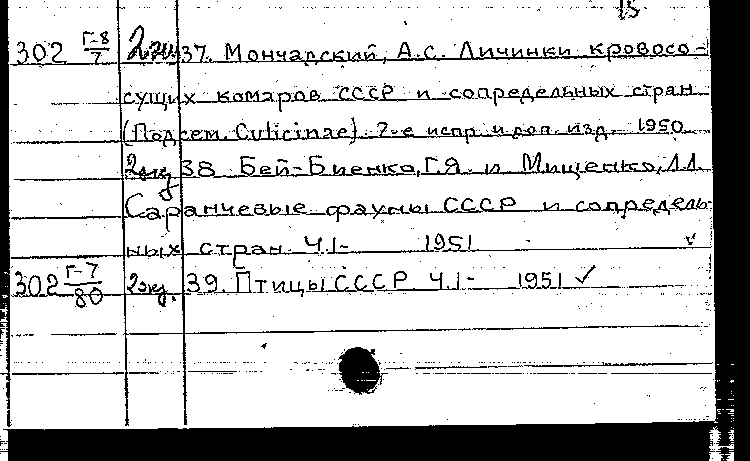 15
302 Г-8/7 2 экз. 37. Мончадский, А.С. Личинки кровосо-
сущих комаров СССР и сопредельных стран
(Подсем. Culicinae). 2-е испр. и доп. изд. 1950
2 экз. 38 Бей-Биенко, Г.Я. и Мищенко, Л.Л.
Саранчевые фауны СССР и сопредель-
ных стран. Ч.I- 1951 v
302 Г-7/80 2 экз. 39. Птицы СССР. Ч.I- 1951 ✓